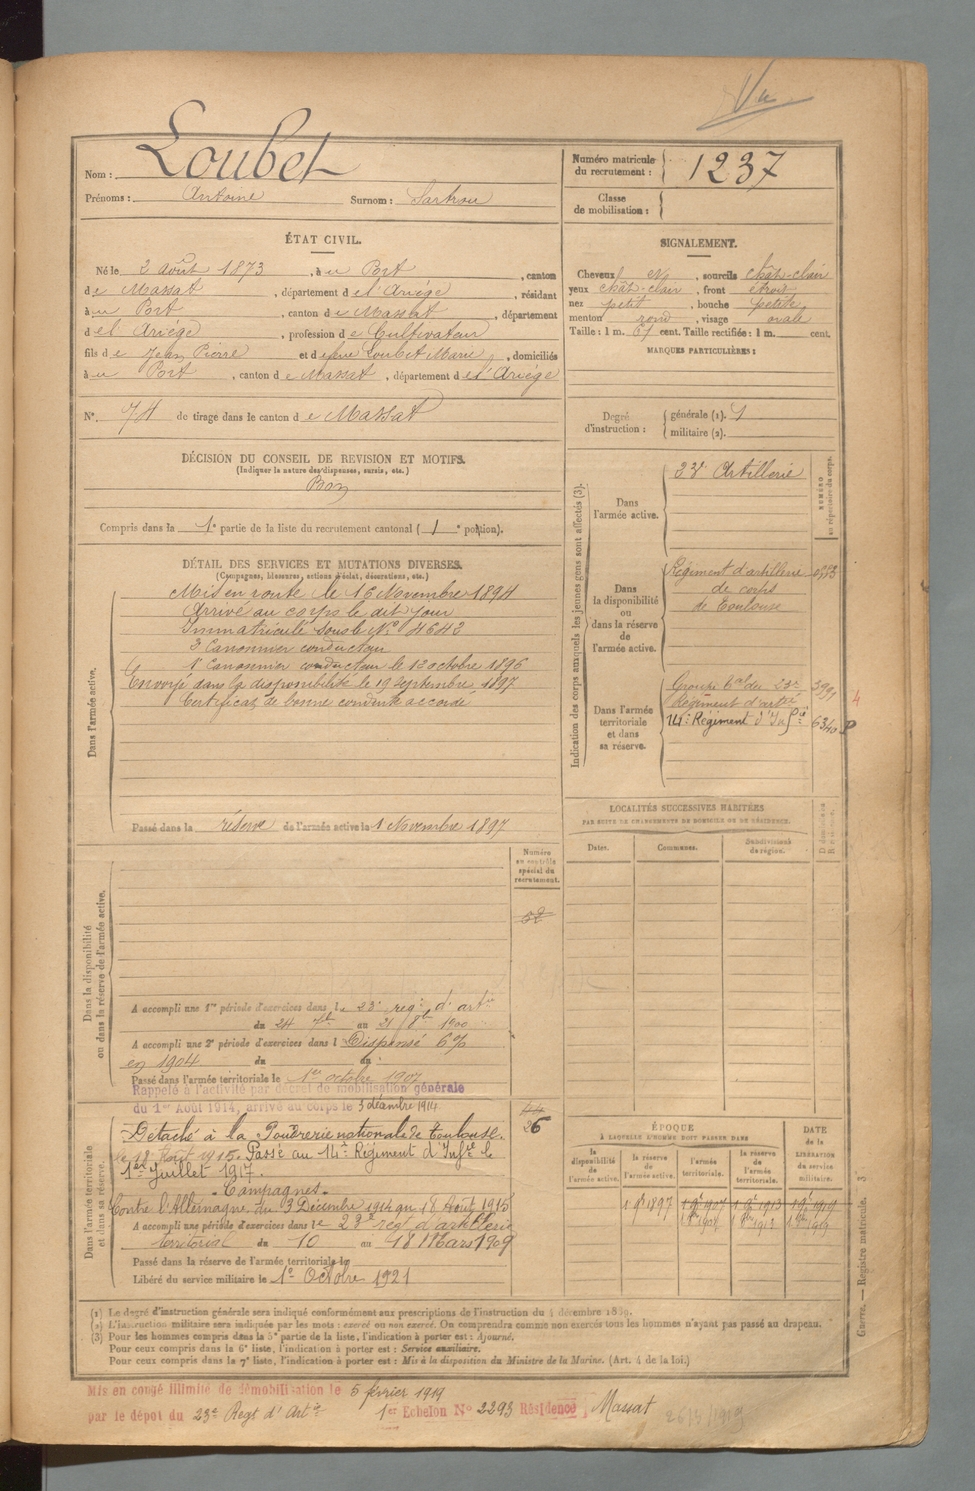 Vu
Nom : Loubet
Prénoms : Antoine Surnom : Sartrou
Numéro matricule du recrutement : 1237
Classe de mobilisation :
ÉTAT CIVIL.
Né le 2 août 1873, à u Port, canton
de Massat, département de l'Ariège, résidant
à u Port, canton de Massat, département
d el Ariège, profession de Cultivateur
fils de Jean Pierre et d Loubet Marie, domiciliés
à u Port, canton de Massat, département de l'Ariège
N°. 74 de tirage dans le canton de Massat
DÉCISION DU CONSEIL DE REVISION ET MOTIFS.
(Indiquer la nature des dispenses, sursis, etc.)
Bon
Compris dans la 1e partie de la liste du recrutement cantonal (1e portion).
SIGNALEMENT.
Cheveux, sourcils chât-clair
yeux chât-clair, front étroit
nez petit, bouche petite
menton rond, visage ovale
Taille : 1 m. 61 cent. Taille rectifiée : 1 m. cent.
MARQUES PARTICULIÈRES :
Degré d'instruction : générale (1). militaire (2).
DÉTAIL DES SERVICES ET MUTATIONS DIVERSES.
(Campagnes, blessures, actions d'éclat, décorations, etc.)
Dans l'armée active.
Mis en route le 16 Novembre 1894
Arrivé au corps le dit jour
Immatriculé sous le N° 4642
2e Canonnier conducteur
1e Canonnier conducteur le 12 octobre 1896
Envoyé dans la disponibilité le 19 Septembre 1897
Certificat de bonne conduite accordé
Passé dans la réserve de l'armée active le 1 Novembre 1897
Indication des corps auxquels les jeunes gens sont affectés (3).
NUMÉRO au répertoire du corps.
Dans l'armée active.
23e Artillerie
Dans la disponibilité ou dans la réserve de l'armée active.
Régiment d'artillerie
de corps
de Toulouse
Dans l'armée territoriale et dans sa réserve.
Groupe tal du 23e
Régiment d'artie
14e Régiment d'Infie 6340
LOCALITÉS SUCCESSIVES HABITÉES
PAR SUITE DE CHANGEMENTS DE DOMICILE OU DE RÉSIDENCE.
Dates. Communes. Subdivisions de région.
Numéro au contrôle spécial du recrutement.
Dans la disponibilité ou dans la réserve de l'armée active.
A accompli une 1re période d'exercices dans le 23e regt d'artie
du 24 7bre au 21 8bre 1900
A accompli une 2e période d'exercices dans l Dispensé 6%
en 1904 du au
Passé dans l'armée territoriale le 1er octobre 1907
Rappelé à l'activité par décret de mobilisation générale
du 1er Août 1914, arrivé au corps le 3 décembre 1914
Dans l'armée territoriale et dans sa réserve.
Détaché à la Poudrerie nationale de Toulouse.
le 18 Août 1915. Passé au 14e Régiment d'Infie le
1er Juillet 1917.
Campagnes.
Contre l'Allemagne du 3 Décembre 1914 au 18 Août 1915
A accompli une période d'exercices dans le 23e regt d'artillerie
territorial du 10 au 18 Mars 1909
Passé dans la réserve de l'armée territoriale le
Libéré du service militaire le 1er Octobre 1921
26
ÉPOQUE
À LAQUELLE L'HOMME DOIT PASSER DANS
la disponibilité de l'armée active. la réserve de l'armée active. l'armée territoriale. la réserve de l'armée territoriale. DATE de la LIBÉRATION du service militaire.
(1) Le degré d'instruction générale sera indiqué conformément aux prescriptions de l'instruction du 4 décembre 1889.
(2) L'instruction militaire sera indiquée par les mots : exercé ou non exercé. On comprendra comme non exercés tous les hommes n'ayant pas passé au drapeau.
(3) Pour les hommes compris dans la 5e partie de la liste, l'indication à porter est : Ajourné.
Pour ceux compris dans la 6e liste, l'indication à porter est : Service auxiliaire.
Pour ceux compris dans la 7e liste, l'indication à porter est : Mis à la disposition du Ministre de la Marine. (Art. 4 de la loi.)
Guerre. — Registre matricule. 3
Mis en congé illimité de démobilisation le 5 février 1919
par le dépôt du 23e Regt d'Artie 1er Echelon N° 2293 Résidence Massat